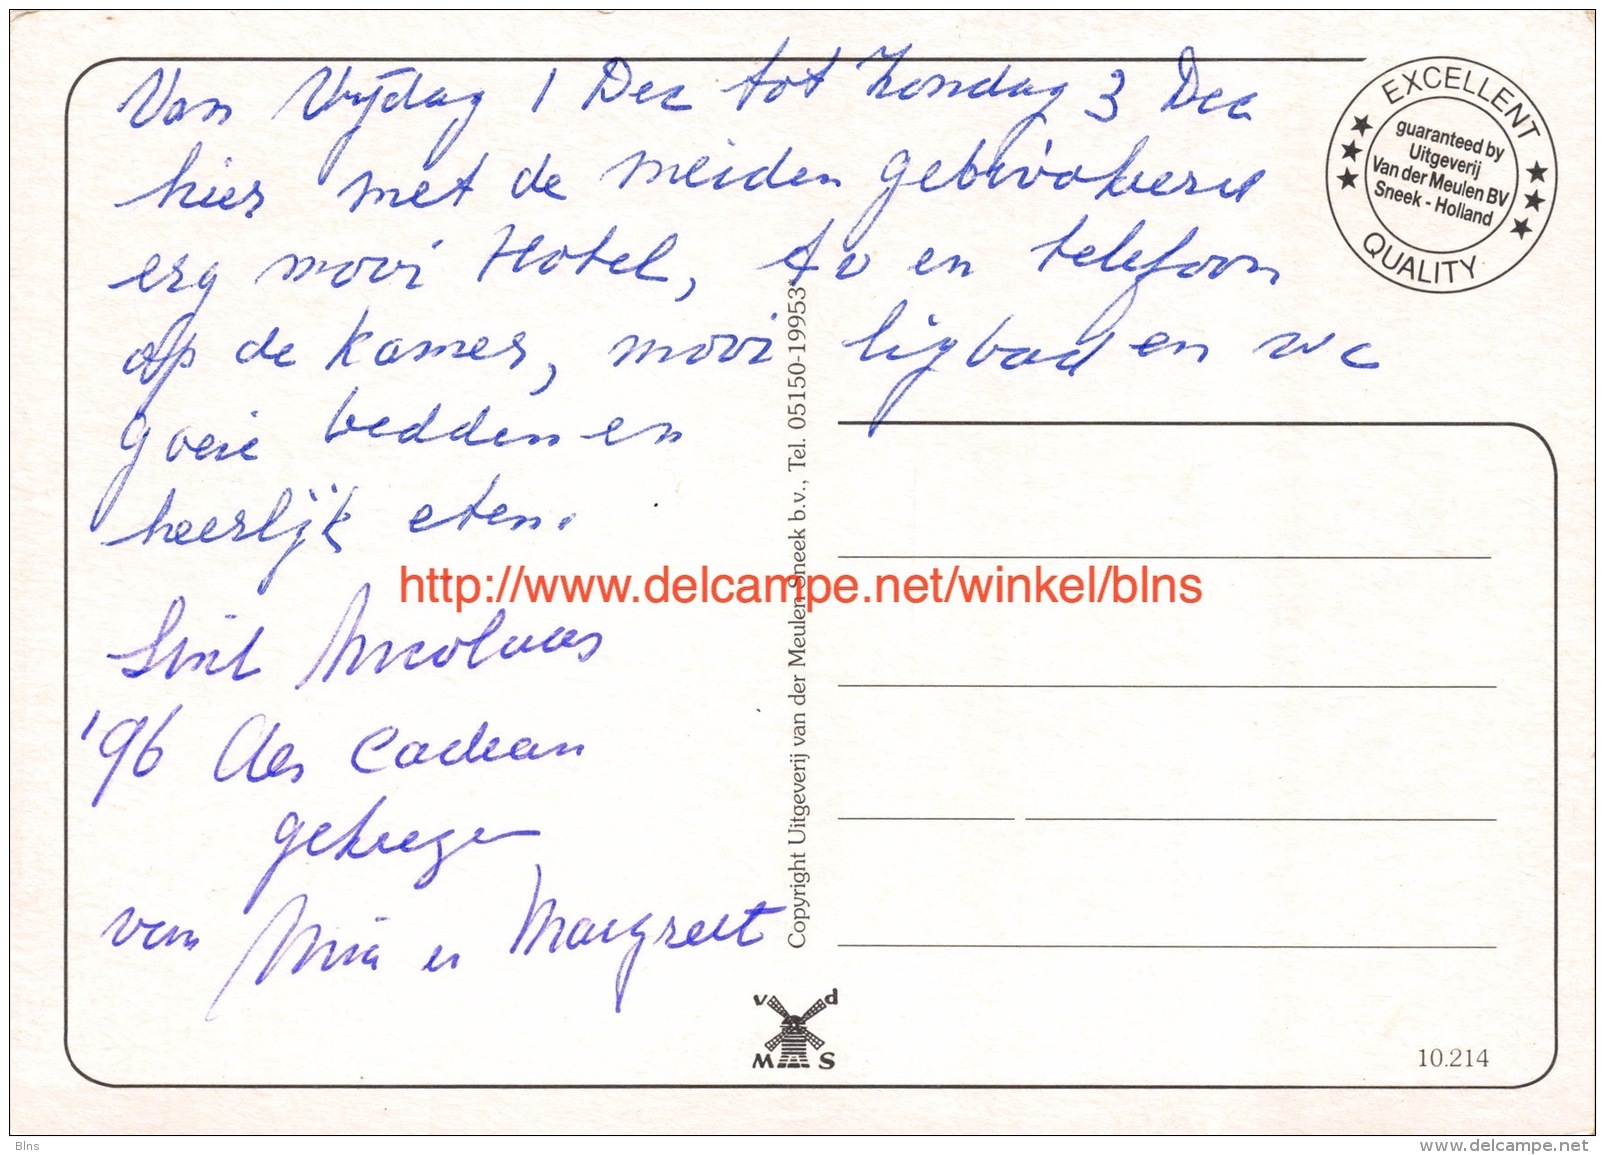 Van Vrijdag 1 Dec tot Zondag 3 Dec
hier met de meiden gebivakeerd
erg mooi Hotel, tv en telefoon
op de kamer, mooi ligbad en wc
goeie bedden en
heerlijk eten.
Sint Nicolaas
'96 als Cadeau
gekregen
van Mia en Margreet
EXCELLENT
guaranteed by
Uitgeverij
Van der Meulen BV
Sneek - Holland
QUALITY
Copyright Uitgeverij van der Meulen Sneek b.v., Tel. 05150-19953
http://www.delcampe.net/winkel/blns
v d
M S
10.214
Blns
www.delcampe.net